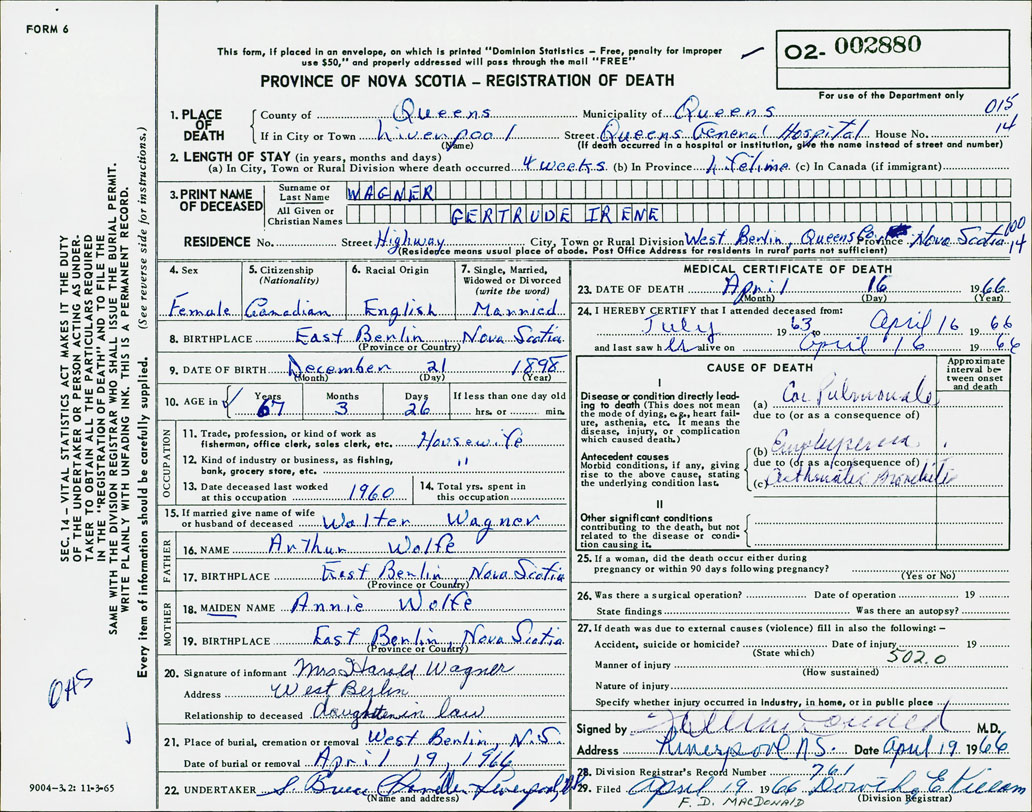 FORM 6
This form, if placed in an envelope, on which is printed "Dominion Statistics – Free, penalty for improper
use $50," and properly addressed will pass through the mail "FREE"
02- 002880
For use of the Department only
PROVINCE OF NOVA SCOTIA – REGISTRATION OF DEATH
1. PLACE OF DEATH
County of Queens Municipality of Queens 015
If in City or Town Liverpool Street Queens General Hospital House No. 14
(Name) (If death occurred in a hospital or institution, give the name instead of street and number)
2. LENGTH OF STAY (in years, months and days)
(a) In City, Town or Rural Division where death occurred 4 weeks (b) In Province Lifetime (c) In Canada (if immigrant)
3. PRINT NAME OF DECEASED
Surname or Last Name WAGNER
All Given or Christian Names GERTRUDE IRENE
RESIDENCE No. Street Highway City, Town or Rural Division West Berlin, Queens Co. Province Nova Scotia 000 14
(Residence means usual place of abode. Post Office Address for residents in rural parts not sufficient)
4. Sex Female
5. Citizenship (Nationality) Canadian
6. Racial Origin English
7. Single, Married, Widowed or Divorced (write the word) Married
8. BIRTHPLACE East Berlin, Nova Scotia
(Province or Country)
9. DATE OF BIRTH December 21 1898
(Month) (Day) (Year)
10. AGE in Years 67 Months 3 Days 26 If less than one day old hrs. or min.
OCCUPATION
11. Trade, profession, or kind of work as
fisherman, office clerk, sales clerk, etc. Housewife
12. Kind of industry or business, as fishing,
bank, grocery store, etc. "
13. Date deceased last worked
at this occupation 1960
14. Total yrs. spent in
this occupation
15. If married give name of wife
or husband of deceased Walter Wagner
FATHER
16. NAME Arthur Wolfe
17. BIRTHPLACE East Berlin, Nova Scotia
(Province or Country)
MOTHER
18. MAIDEN NAME Annie Wolfe
19. BIRTHPLACE East Berlin, Nova Scotia
(Province or Country)
20. Signature of informant Mrs Harold Wagner
Address West Berlin
Relationship to deceased daughter in law
21. Place of burial, cremation or removal West Berlin, N.S.
Date of burial or removal April 19, 1966
22. UNDERTAKER S Bruce Chandler Liverpool, N.S.
(Name and address)
MEDICAL CERTIFICATE OF DEATH
23. DATE OF DEATH April 16 1966
(Month) (Day) (Year)
24. I HEREBY CERTIFY that I attended deceased from:
July 1963 to April 16 1966
and last saw her alive on April 16 1966
CAUSE OF DEATH
Approximate interval between onset and death
I
Disease or condition directly leading
to death (This does not mean
the mode of dying, e.g., heart failure,
asthenia, etc. It means the
disease, injury, or complication
which caused death.)
(a) Cor Pulmonale
due to (or as a consequence of)
Antecedent causes
Morbid conditions, if any, giving
rise to the above cause, stating
the underlying condition last.
(b) Emphysema
due to (or as a consequence of)
(c) Asthmatic Bronchitis
II
Other significant conditions
contributing to the death, but not
related to the disease or condition
causing it.
25. If a woman, did the death occur either during
pregnancy or within 90 days following pregnancy?
(Yes or No)
26. Was there a surgical operation? Date of operation 19
State findings Was there an autopsy?
27. If death was due to external causes (violence) fill in also the following: –
Accident, suicide or homicide? Date of injury 19
(State which) 502.0
Manner of injury
(How sustained)
Nature of injury
Specify whether injury occurred in industry, in home, or in public place
Signed by M.D.
Address Liverpool N.S. Date April 19 1966
28. Division Registrar's Record Number 761
29. Filed April 19 1966 Dorothy E Killam
F. D. MACDONALD (Division Registrar)
SEC. 14 – VITAL STATISTICS ACT MAKES IT THE DUTY
OF THE UNDERTAKER OR PERSON ACTING AS UNDER-
TAKER TO OBTAIN ALL THE PARTICULARS REQUIRED
IN THE "REGISTRATION OF DEATH" AND TO FILE THE
SAME WITH THE DIVISION REGISTRAR WHO SHALL ISSUE THE BURIAL PERMIT.
WRITE PLAINLY WITH UNFADING INK. THIS IS A PERMANENT RECORD.
Every item of information should be carefully supplied. (See reverse side for instructions.)
9004-3.2: 11-3-65